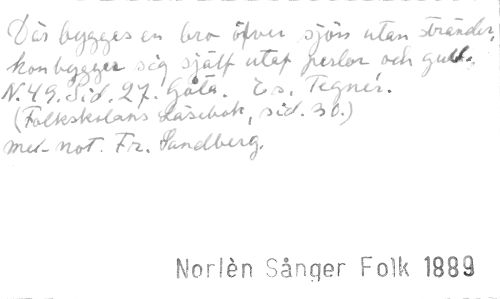 Där bygges en bro öfver sjön utan stränder,
hon bygger sig själf utaf perlor och guld.
N. 49. Sid. 27. Gåta. Es. Tegnér.
(Folkskolans Läsebok, sid. 30.)
med not. Fr. Sandberg.
Norlèn Sånger Folk 1889